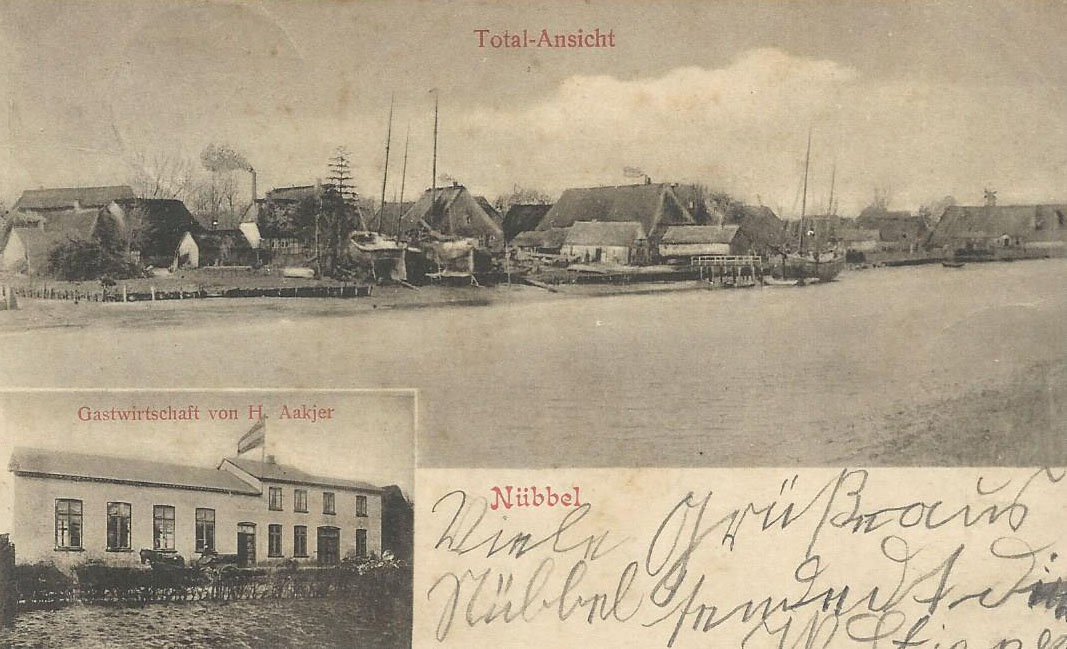 Total-Ansicht
Gastwirtschaft von H. Aakjer
Nübbel
Viele Grüße aus
Nübbel sendet